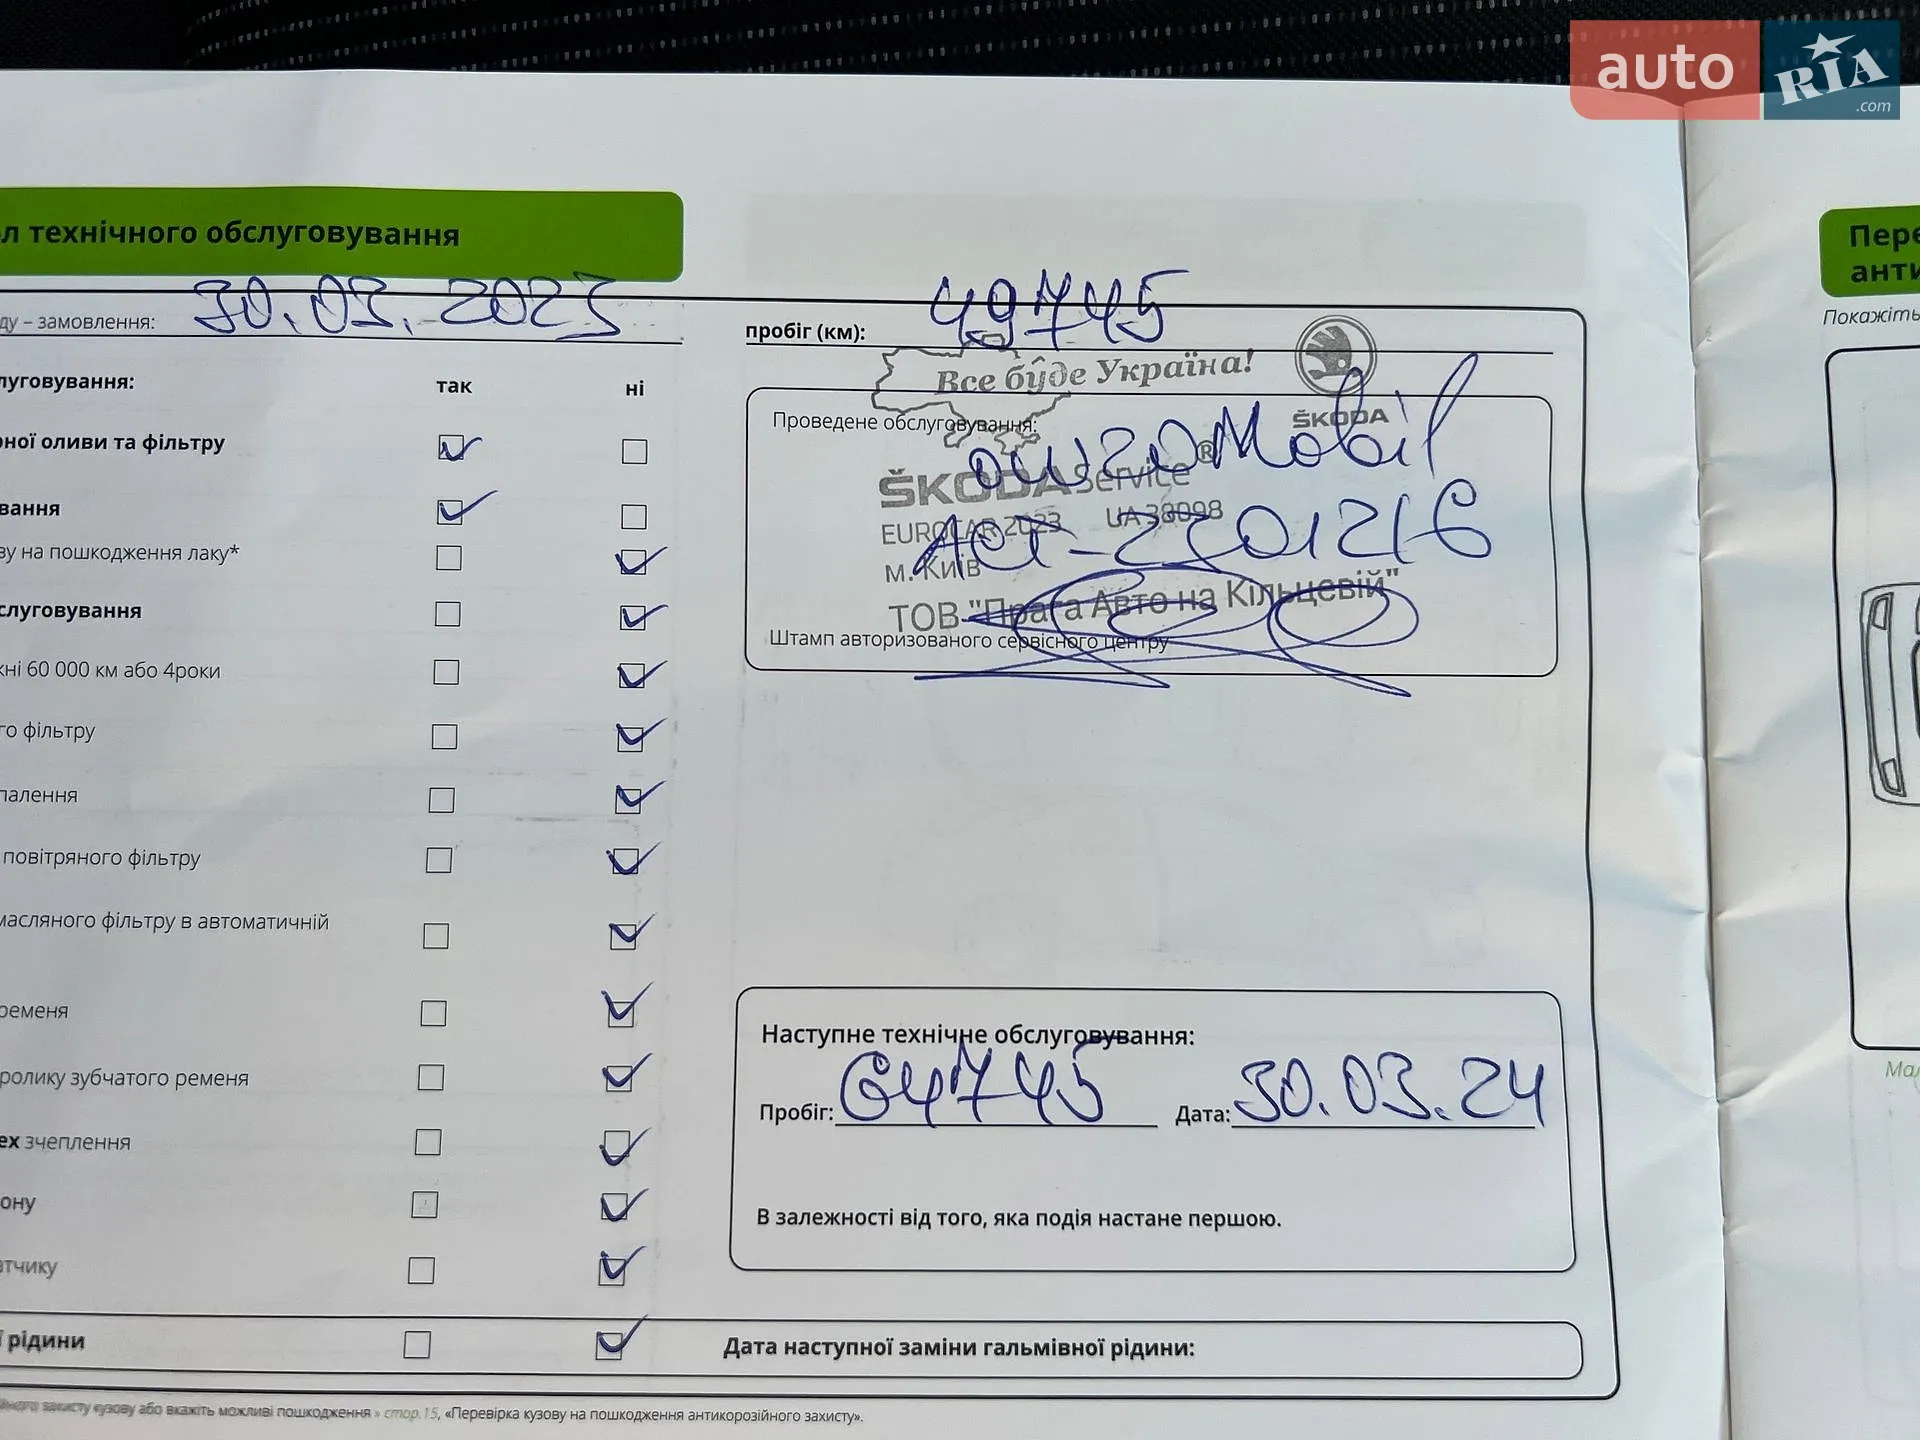 auto RIA .com
л технічного обслуговування
Пере
анти
Покажіть
ду – замовлення: 30.03.2023
пробіг (км): 49745
Все буде Україна!
ŠKODA
луговування: так ні
Проведене обслуговування:
Mobil
рної оливи та фільтру
ŠKODA Service ®
вання
EUROCAR 2023 UA 38098
ву на пошкодження лаку*
м. Київ
слуговування
ТОВ "Прага Авто на Кільцевій"
Штамп авторизованого сервісного центру
кні 60 000 км або 4роки
го фільтру
палення
повітряного фільтру
масляного фільтру в автоматичній
ременя
Наступне технічне обслуговування:
ролику зубчатого ременя
Пробіг: 64745 Дата: 30.03.24
Мал
ex зчеплення
ону
В залежності від того, яка подія настане першою.
тчику
ї рідини
Дата наступної заміни гальмівної рідини:
захисту кузову або вкажіть можливі пошкодження » стор.15, «Перевірка кузову на пошкодження антикорозійного захисту».